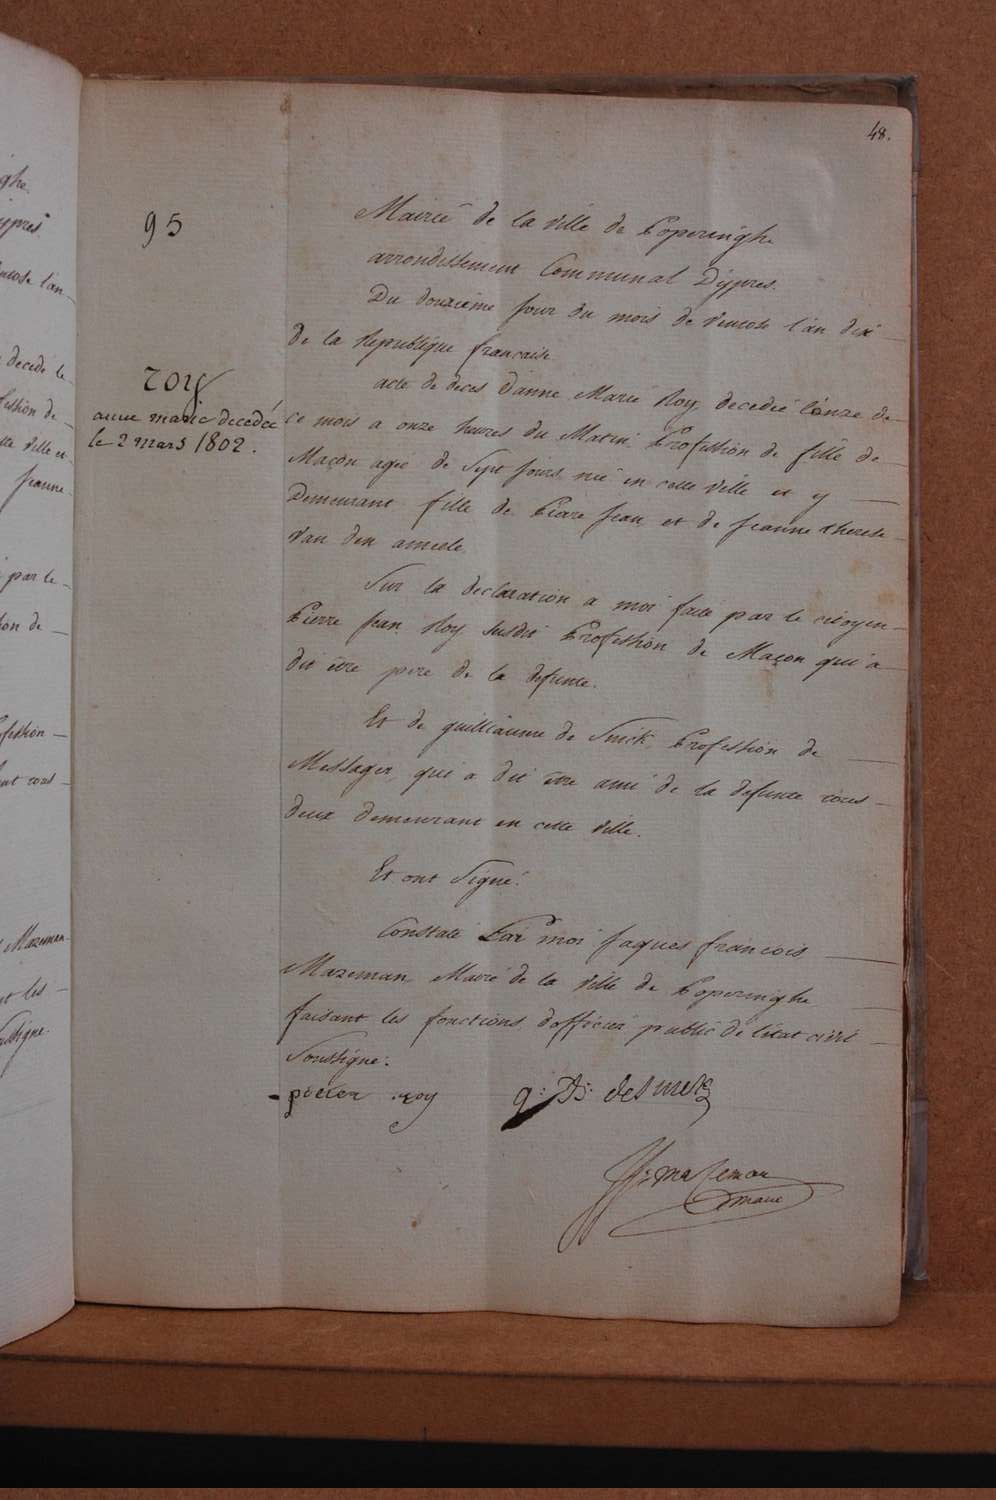 48.
95
Mairie de la ville de Poperinghe
arrondissement Communal Dÿpres.
Du douxieme jour du mois de ventose l'an dix
De la Republique francaise
roÿ
anne marie decedée
le 2 mars 1802.
acte de deces d'anne Marie Roy decedée l'onze de
ce mois a onze heures du Matin, Profession de fille de
Maçon agée de Sept jours née en cette ville et y
Demeurant fille de Pierre jean et de jeanne therese
Van den ameele
Sur la declaration a moi faite par le citoyen
Pierre jean Roy susdit Profession de Maçon qui a
dit être pere de la defunte.
Et de guilliaume de Smet, Profession de
Messager, qui a dit être ami de la defunte tous
deux demeurant en cette ville.
Et ont Signé.
Constaté Par moi jaques francois
Mazeman Maire de la ville de Poperinghe
faisant les fonctions d'officier public de l'état civil
Soussigné.
pieter roy
desmet
mazeman
maire
ghe
ÿpres
decedé le
fession de
tte ville et
jeanne
par le
ion de
fession
Mazeman
les